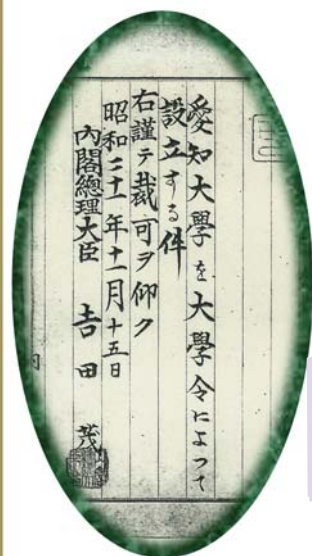 愛知大學を大學令によつて
設立する件
右謹テ裁可ヲ仰ク
昭和二十一年十一月十五日
內閣總理大臣 吉田 茂